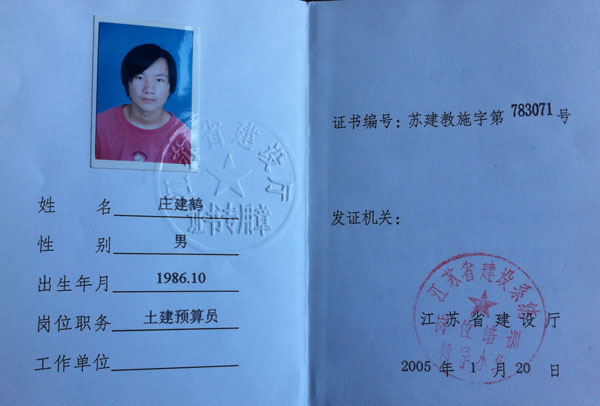 江苏省建设厅
证书专用章
姓 名 庄建鹤
性 别 男
出生年月 1986.10
岗位职务 土建预算员
工作单位
证书编号：苏建教施字第 783071 号
发证机关：
江苏省建设系统
岗位培训
江苏省建设厅
2005 年 1 月 20 日